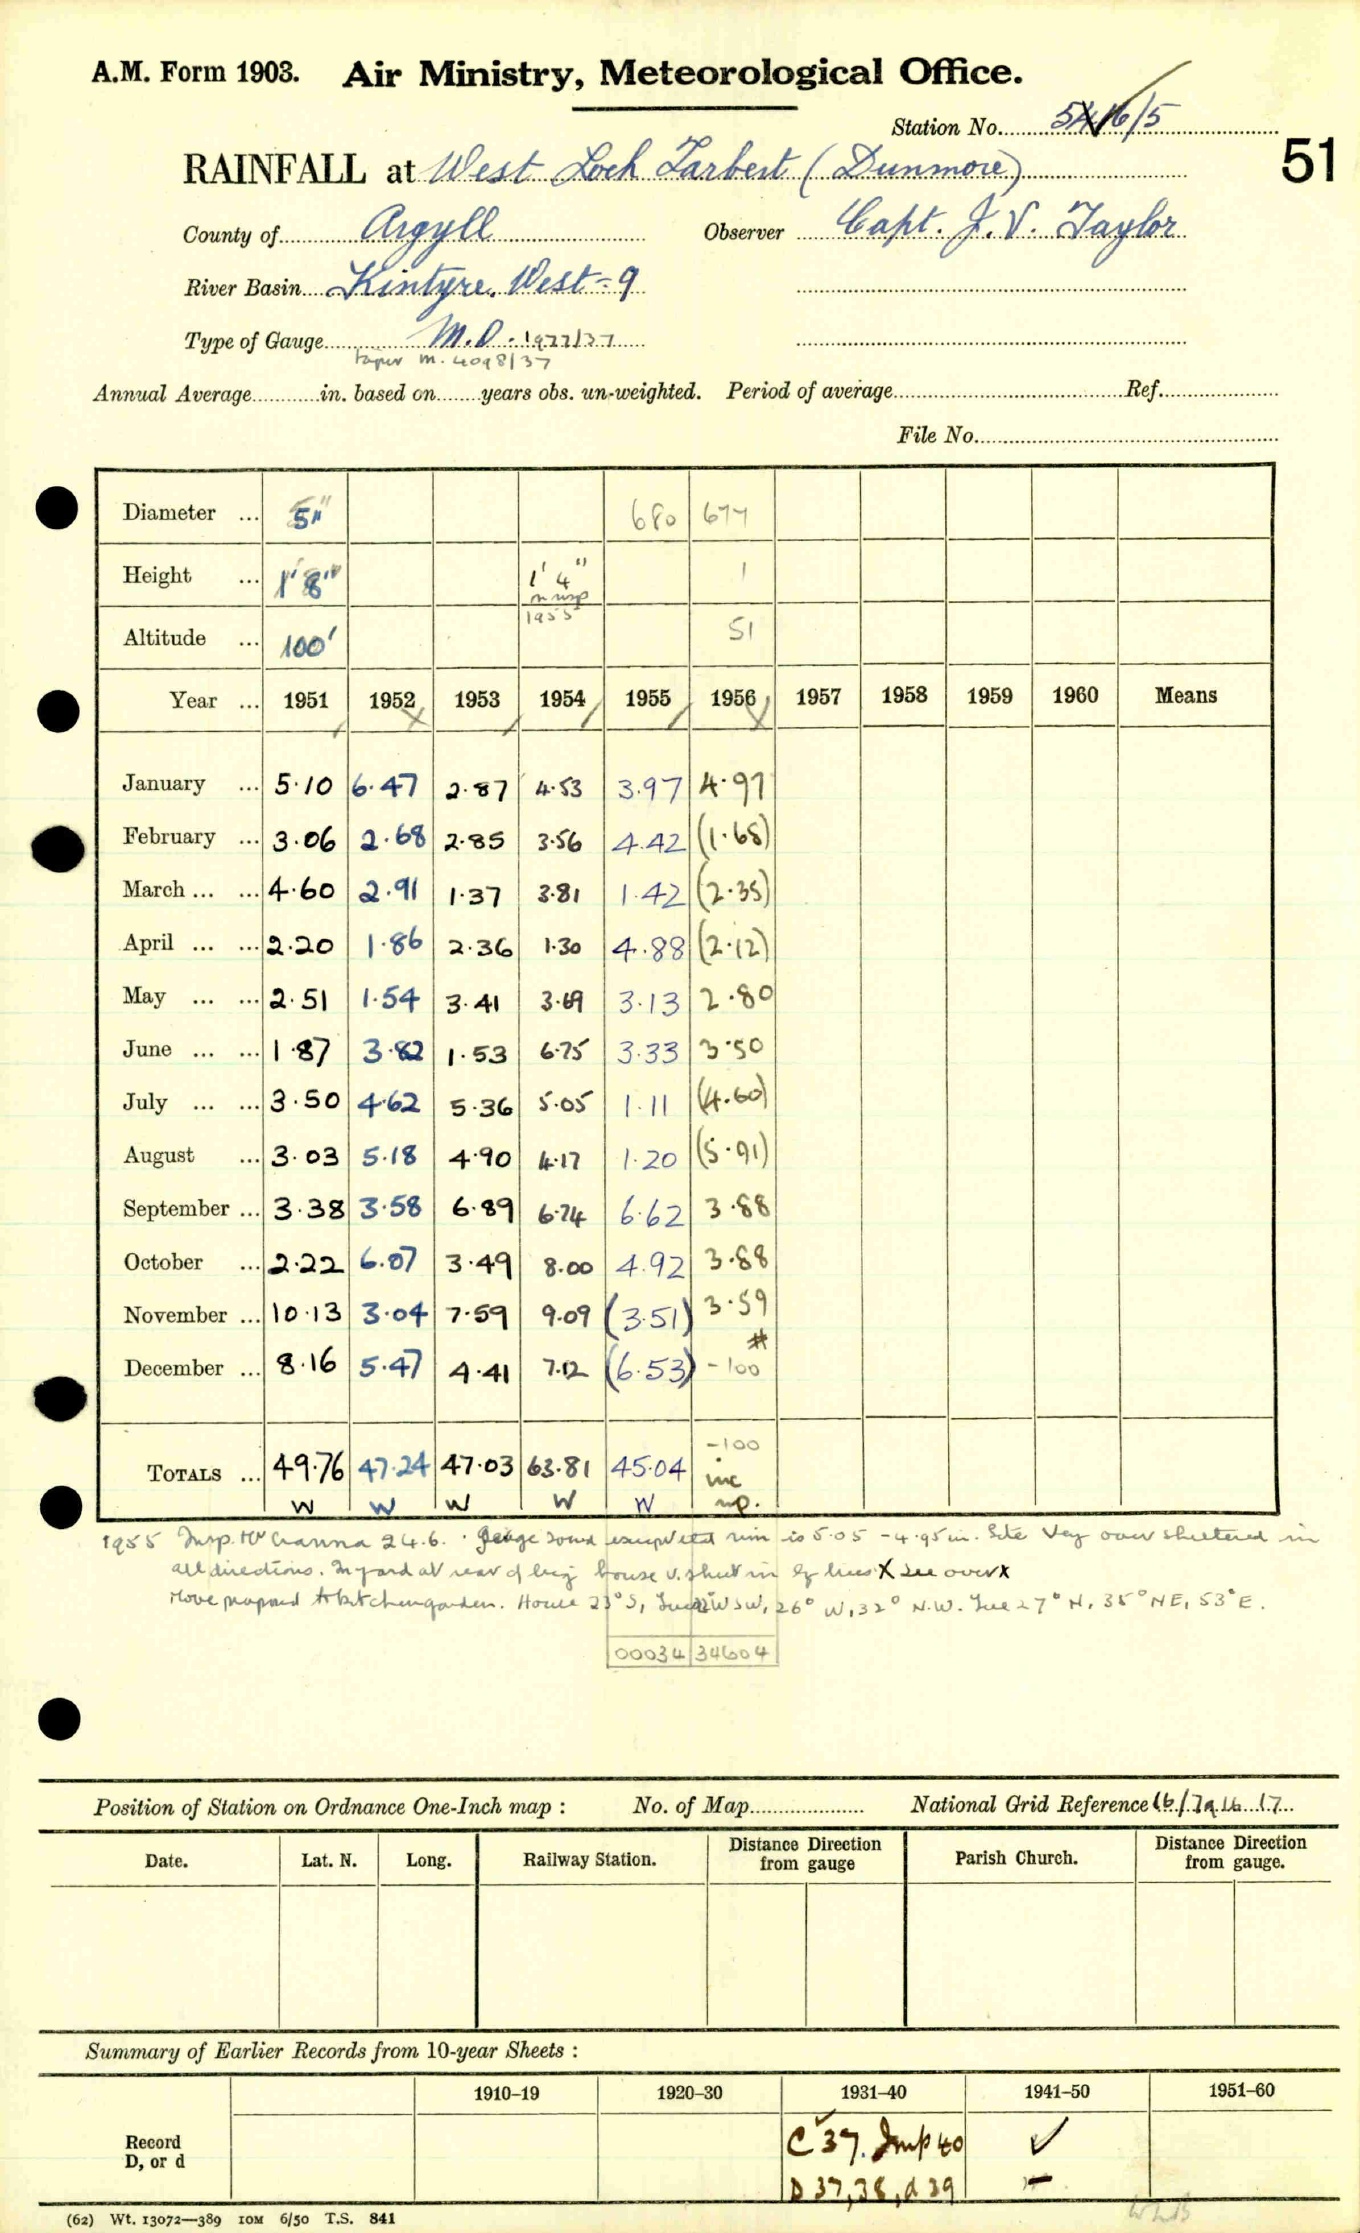 A.M. Form 1903. Air Ministry, Meteorological Office.
Station No. 5416/5
51
RAINFALL at West Loch Tarbert (Dunmore)
County of Argyll Observer Capt. J. V. Taylor
River Basin Kintyre. West - 9
Type of Gauge M.O. 1977/37
taper M. 4098/37
Annual Average in. based on years obs. un-weighted. Period of average Ref.
File No.
Diameter ... 5" 680 677
Height ... 1' 8" 1' 4" 1
1955
Altitude ... 100' 51
Year ... 1951 1952 1953 1954 1955 1956 1957 1958 1959 1960 Means
January ... 5.10 6.47 2.87 4.53 3.97 4.97
February ... 3.06 2.68 2.85 3.56 4.42 (1.68)
March ... ... 4.60 2.91 1.37 3.81 1.42 (2.35)
April ... ... 2.20 1.86 2.36 1.30 4.88 (2.12)
May ... ... 2.51 1.54 3.41 3.69 3.13 2.80
June ... ... 1.87 3.82 1.53 6.75 3.33 3.50
July ... ... 3.50 4.62 5.36 5.05 1.11 (4.60)
August ... 3.03 5.18 4.90 4.17 1.20 (5.91)
September ... 3.38 3.58 6.89 6.74 6.62 3.88
October ... 2.22 6.07 3.49 8.00 4.92 3.88
November ... 10.13 3.04 7.59 9.09 (3.51) 3.59
#
December ... 8.16 5.47 4.41 7.12 (6.53) -100
-100
TOTALS ... 49.76 47.24 47.03 63.81 45.04 inc
W W W W W
1955 Insp. 24.6. Gauge sound except that rim is 5.05 - 4.95 in. Site very over sheltered in
all directions. In yard at rear of big house v. shut in by trees X see over X
Move to kitchen garden. House 23° S, WSW, 26° W, 32° N.W. Tree 27° N, 35° NE, 53° E.
00034 34604
Position of Station on Ordnance One-Inch map : No. of Map National Grid Reference 16/79 16 17
Date. Lat. N. Long. Railway Station. Distance Direction from gauge Parish Church. Distance Direction from gauge.
Summary of Earlier Records from 10-year Sheets :
1910–19 1920–30 1931–40 1941–50 1951–60
Record C 37. Imp 40 ✓
D, or d D 37, 38, d 39 –
(62) Wt. 13072—389 10M 6/50 T.S. 841